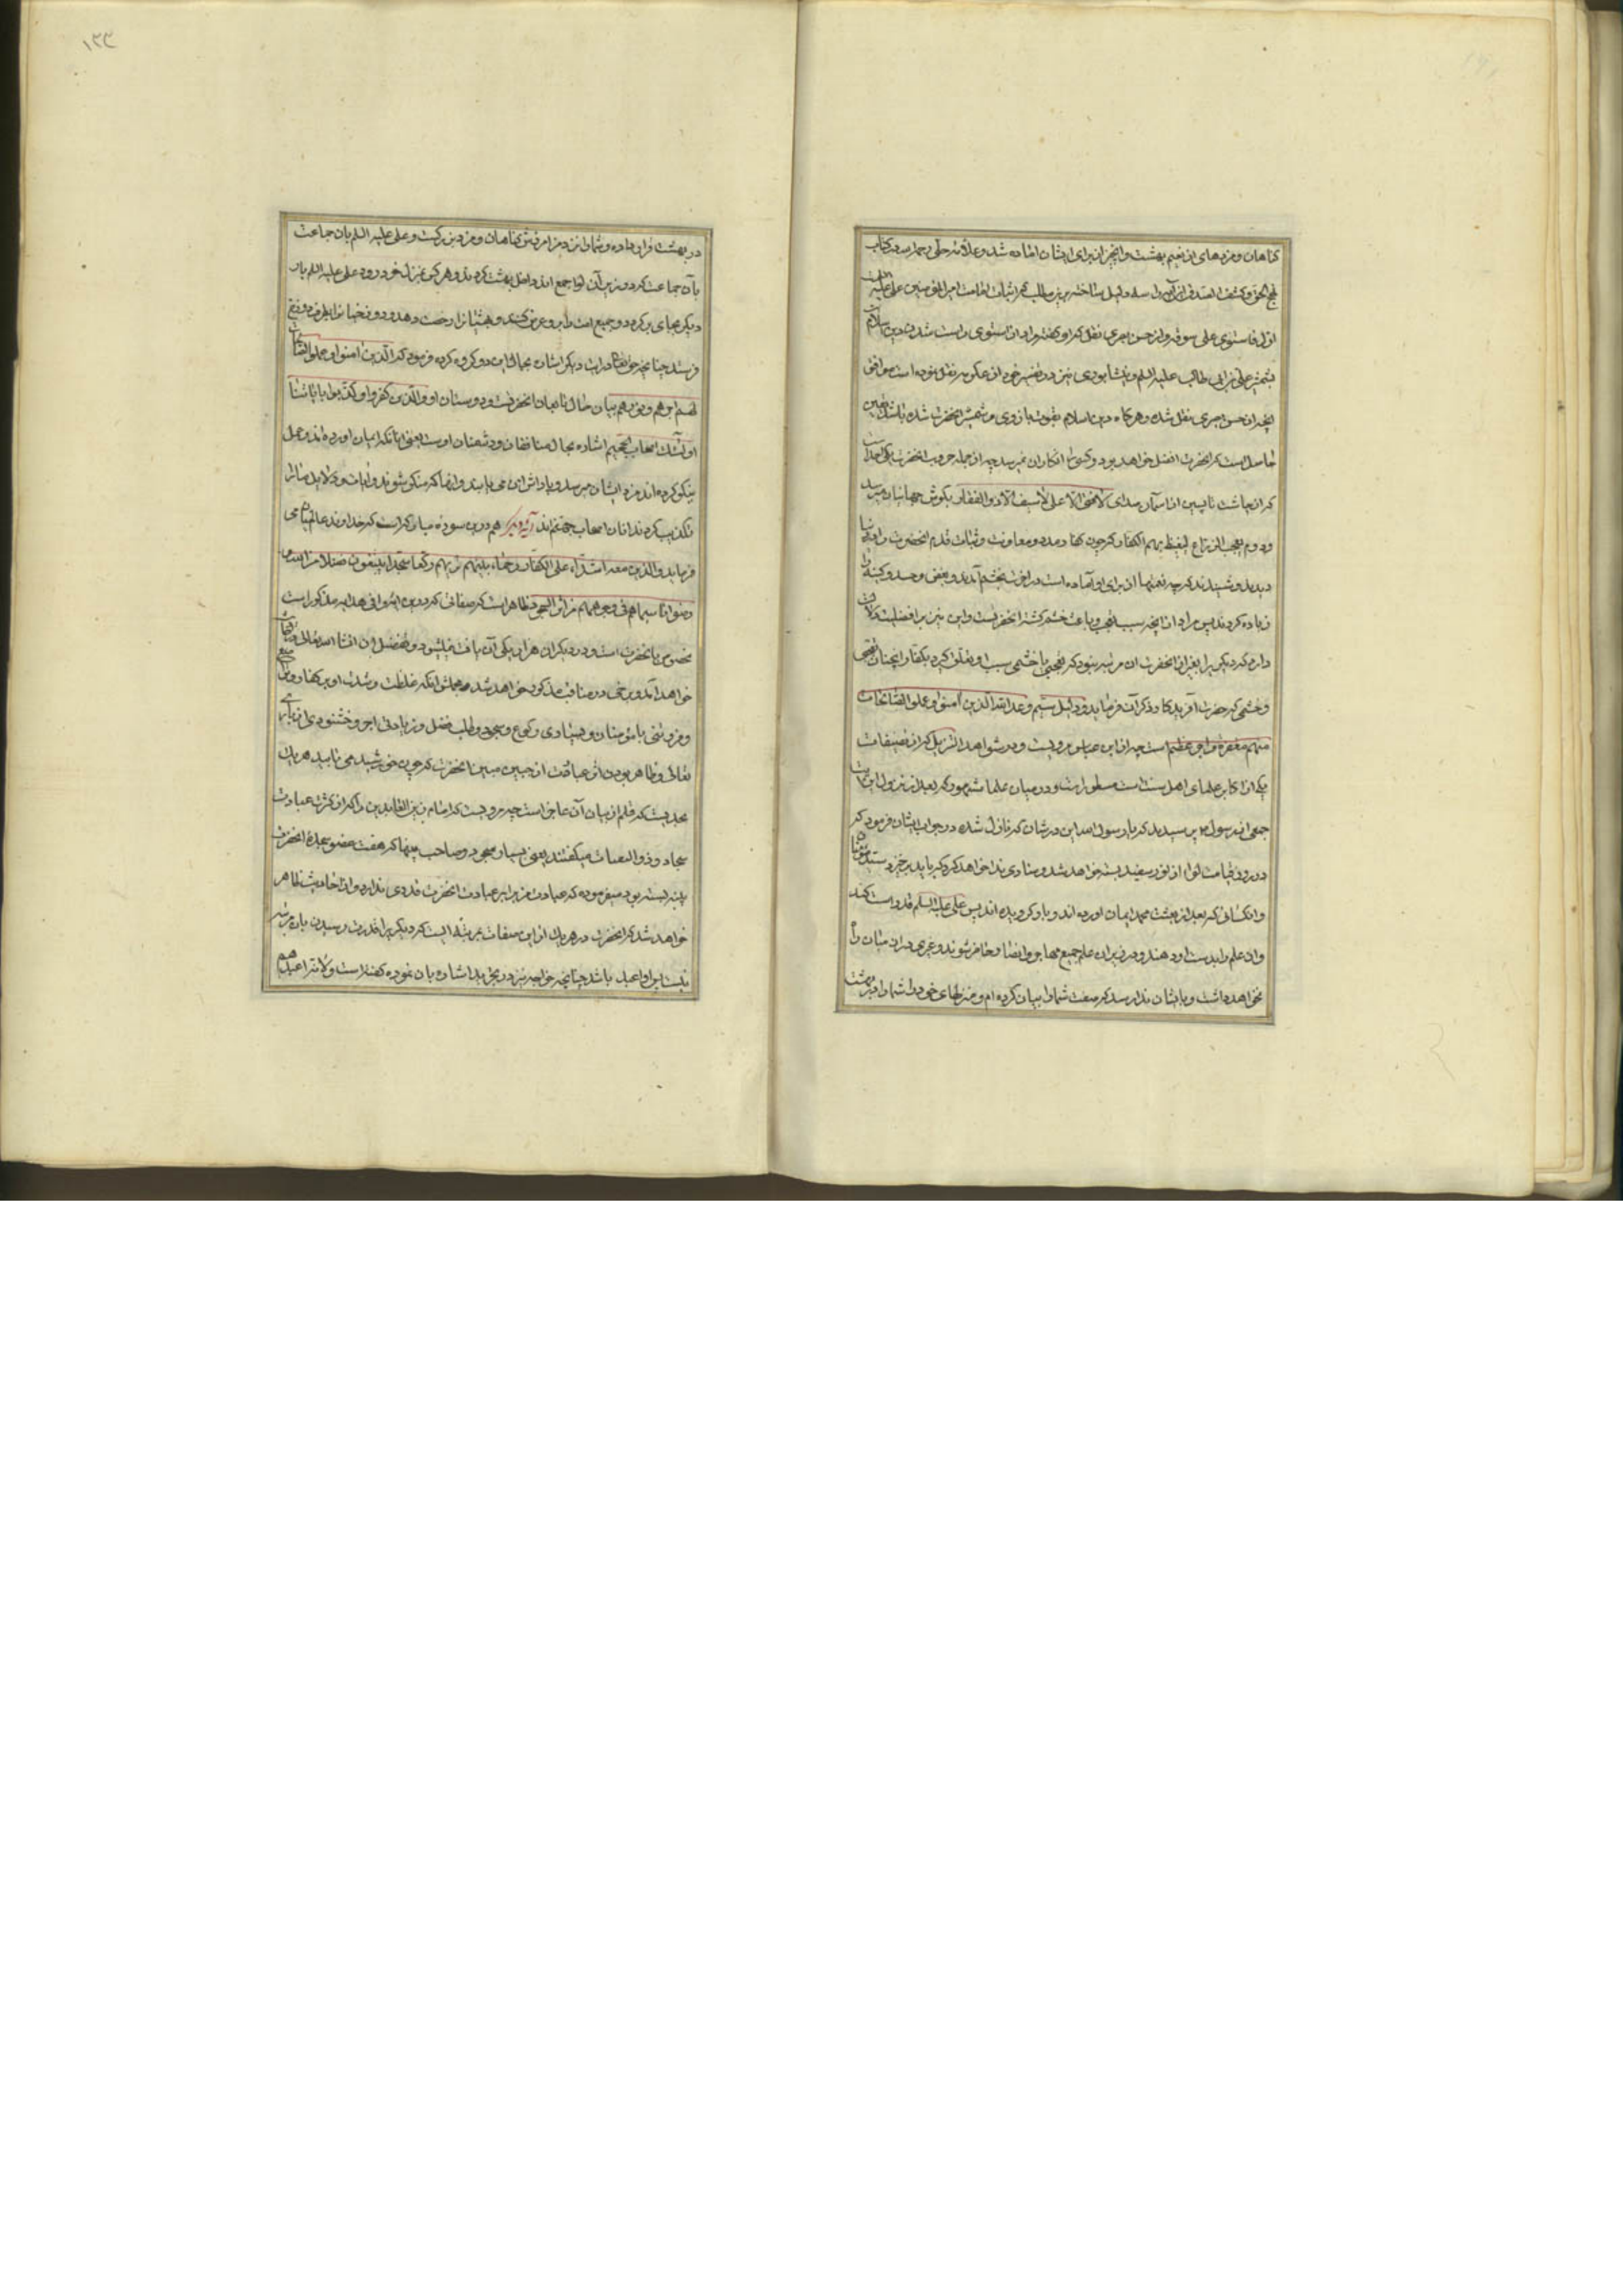 کناهان و مزدهای از نعیم بهشت و انچه از برای ایشان اماده شد و علامه حلی رحمه الله در کتاب
نهج الحق و کشف الصدق این آیه را دلیل ساخته بر مطلب که اثبات امامت امیر المؤمنین علی علیه السلم است
فاستوی علی سوقه و از حسن بصری نقل کرد و کفته مراد از استوی راست شدن دین اسلام
بشمشیر علی بن ابی طالب علیه السلم و نیشابوری نیز در تفسیر خود از عکرمه نقل نموده است موافق
انچه از حسن بصری نقل شده و هرکاه دین اسلام بقوت بازوی و شمشیر انحضرت شده باشد یقین
حاصل است که انحضرت افضل خواهد بود و کسی را انکار ان نمیرسد چه از جمله حروب انحضرت یکی احد است
که از چاشت تا پسین از آسمان صدای لافتی الا علی لا سیف الا ذو الفقار بکوش جهانیان میرسد
و دوم یعجب الزراع لیغیظ بهم الکفار که چون کفار مدد و معاونت و ثبات قدم انحضرت را در
دیدند و شنیدند که چه نعمتها از برای او آماده است در اخرت بخشم آمدند و بغض و حسد و کینه را
زیاده کردند پس مراد از انچه سبب تعجب و باعث خشم کشته انحضرتست و این نیز بر افضلیت دلالت
دارد که دیکری را بغیر از انحضرت ان مرتبه نبود که تعجبی یا خشمی سبب او تعلق کیرد بکفار انچنان تعجبی
و خشمی که حضرت آفریدکار ذکر آن فرماید و دلیل سیم وعد الله الذین آمنوا و عملوا الصالحات
منهم مغفرة و اجرا عظیما است چه از ابن عباس مرویست و در شواهد التنزیل که از تصنیفات
یکی از اکابر علمای اهل سنت است مسطور است و در میان علما مشهور که بعد از نزول این آیت
جمعی از رسول ص پرسیدند که یا رسول الله این در شان که نازل شده در جواب ایشان فرمود که
در روز قیامت لوا از نور سفید بسته خواهد شد و منادی ندا خواهد کرد که باید برخیزد سید مؤمنان
و انکسانی که بعد از بعثت محمد ایمان اورده اند و باو کرویده اند پس علی علیه السلم قد راست کند
و ان علم را بدست او دهند و در زیر ان علم جمیع مهاجر و انصار حاضر شوند و غیری در ان میان راه
نخواهد داشت و بایشان ندا رسد که صفت شما را بیان کرده ام و منزلهای خود را شما را در بهشت
در بهشت قرار داده و شما را نزد من آمرزش کناهان و مزد بزرکست و علی علیه السلم بان جماعت
با آن جماعت که در زیر آن لوا جمع اند داخل بهشت کردند و هر کس بمنزل خود رود علی علیه السلم بار
دیکر بجای بر کردد و جمیع امت را برو عرض کنند و بهشتیانرا رخصت دهد و دوزخیانرا بطرف دوزخ
فرستد چنانچه حق تعالی در ایت دیکر اشاره بحال این دو کروه کرده فرمود که الذین امنوا و عملوا الصالحات
لهم اجرهم و نورهم بیان حال تابعان انحضرتست و دوستان او و الذین کفروا و کذبوا بایاتنا
اولئک اصحاب الجحیم اشاره بحال منافقان و دشمنان اوست یعنی انانکه ایمان اورده اند و عمل
نیکو کرده اند مزد ایشان میرسد و پاداش این می یابند و انها که منکر شوند و ایات و دلایل ما را
تکذیب کردند انان اصحاب جهنم اند آیه دیکر هم درین سوره مبارکه است که خداوند عالمیان می
فرماید والذین معه اشداء علی الکفار رحماء بینهم تریهم رکعا سجدا یبتغون فضلا من الله
و رضوانا سیماهم فی وجوههم من اثر السجود ظاهر است که صفاتی که درین ایه وافی هدایه مذکور است
مخصوص بانحضرت است و در دیکران هرانی یکی آن یافت نمیشود و تفصیل ان انشا الله تعالی
خواهد آمد و برخی در مناقب مذکور خواهد شد مجملش انکه غلظت و شدت او بر کفار
و فروتنی با مؤمنان و بسیاری رکوع و سجود و طلب فضل و زیادتی اجر و خشنودی از باری
تعالی و ظاهر بودن اثر عبادت از جبین مبین انحضرت که چون خورشید می تابید هر یک
بحدیست که قلم از بیان آن عاجز است چه مرویست که امام زین العابدین را که از کثرت عبادت
سجاد و ذو الثفنات میکفتند یعنی بسیار سجود و صاحب پینها که هفت عضو سجده انحضرت
پینه بسته بود میفرموده که عبادت من برابر عبادت انحضرت قدری ندارد و از احادیث ظاهر
خواهد شد که انحضرت در هر یک ازین صفات بمرتبه ایست که دیکریرا قدرت رسیدن بان مرتبه
نیست پس او اعبد باشد چنانچه خواجه نیز در تجرید اشاره بان نموده کفته است و لانه اعبدهم
۱۲۳